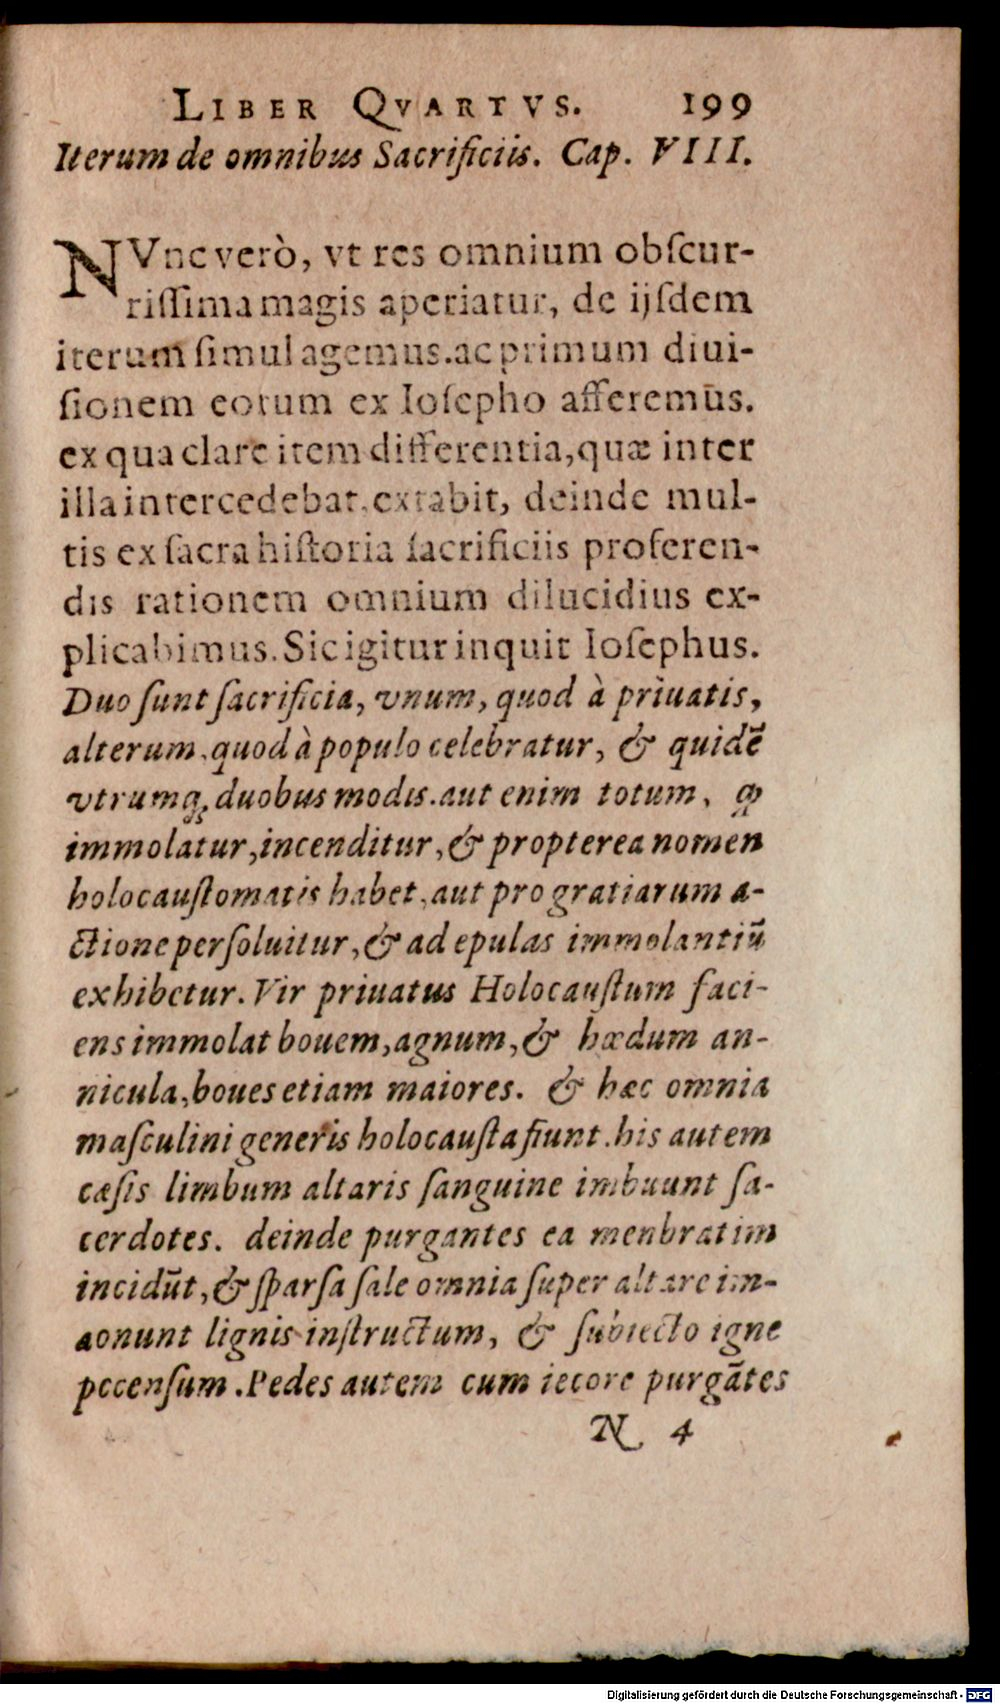 LIBER QVARTVS. 199
Iterum de omnibus Sacrificiis. Cap. VIII.
NVnc verò, vt res omnium obſcur-
riſſima magis aperiatur, de ijſdem
iterum ſimul agemus. ac primum diui-
ſionem eorum ex Ioſepho afferemus.
ex qua clare item differentia, quæ inter
illa intercedebat, extabit, deinde mul-
tis ex ſacra hiſtoria ſacrificiis proferen-
dis rationem omnium dilucidius ex-
plicabimus. Sic igitur inquit Ioſephus.
Duo ſunt ſacrificia, vnum, quod à priuatis,
alterum, quod à populo celebratur, & quidē
vtrumq; duobus modis. aut enim totum, ꝙ
immolatur, incenditur, & propterea nomen
holocauſtomatis habet, aut pro gratiarum a-
ctione perſoluitur, & ad epulas immolantiū
exhibetur. Vir priuatus Holocauſtum faci-
ens immolat bouem, agnum, & hædum an-
nicula, boues etiam maiores. & hæc omnia
maſculini generis holocauſta fiunt. his autem
cæſis limbum altaris ſanguine imbuunt ſa-
cerdotes. deinde purgantes ea menbratim
incidūt, & ſparſa ſale omnia ſuper altare im-
aonunt lignis inſtructum, & ſubiecto igne
pccenſum. Pedes autem cum iecore purgātes
N 4
Digitalisierung gefördert durch die Deutsche Forschungsgemeinschaft - DFG